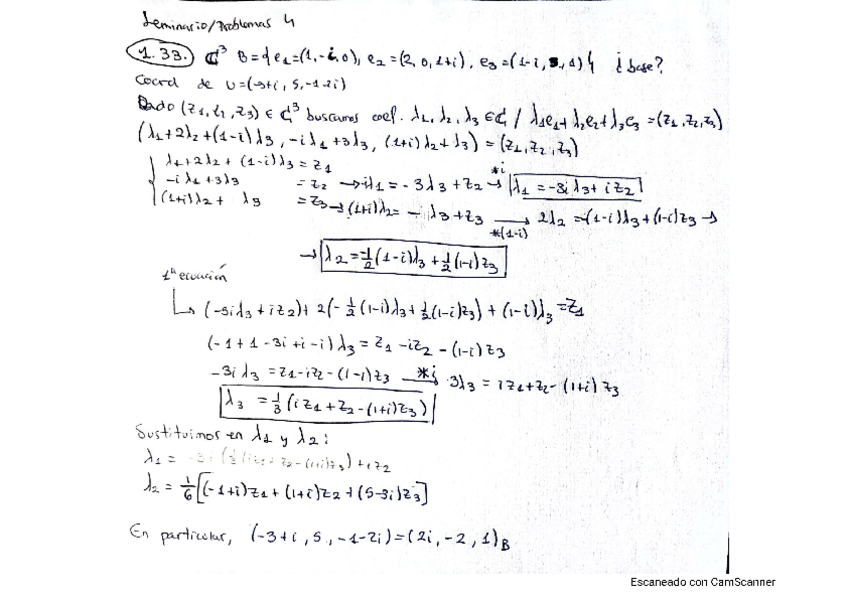 Seminario/Problemas 4
1.33. ℂ³ B={e₁=(1,-i,0), e₂=(2,0,1+i), e₃=(1-i,3,1)} ¿base?
Coord de u=(-3+i, 5, -1-2i)
Dado (z₁,z₂,z₃) ∈ ℂ³ buscamos coef. λ₁, λ₂, λ₃ ∈ ℂ / λ₁e₁+λ₂e₂+λ₃e₃ = (z₁,z₂,z₃)
(λ₁+2λ₂+(1-i)λ₃, -iλ₁+3λ₃, (1+i)λ₂+λ₃) = (z₁,z₂,z₃)
λ₁+2λ₂+(1-i)λ₃ = z₁
-iλ₁+3λ₃ = z₂ → -iλ₁ = -3λ₃+z₂ *i → λ₁ = -3iλ₃+iz₂
(1+i)λ₂+ λ₃ = z₃ → (1+i)λ₂ = -λ₃+z₃ → *(1-i) 2λ₂ = -(1-i)λ₃+(1-i)z₃ →
→ λ₂ = -1/2(1-i)λ₃ + 1/2(1-i)z₃
1ª ecuación
↳ (-3iλ₃+iz₂)+2(-1/2(1-i)λ₃+1/2(1-i)z₃)+(1-i)λ₃ = z₁
(-1+1-3i+i-i)λ₃ = z₁-iz₂-(1-i)z₃
-3iλ₃ = z₁-iz₂-(1-i)z₃ *i → 3λ₃ = iz₁+z₂-(1+i)z₃
λ₃ = 1/3(iz₁+z₂-(1+i)z₃)
Sustituimos en λ₁ y λ₂:
λ₁ = z₂-(1+i)z₃)+iz₂
λ₂ = 1/6[(-1+i)z₁+(1+i)z₂+(5-3i)z₃]
En particular, (-3+i, 5, -1-2i)=(2i, -2, 1)_B
Escaneado con CamScanner